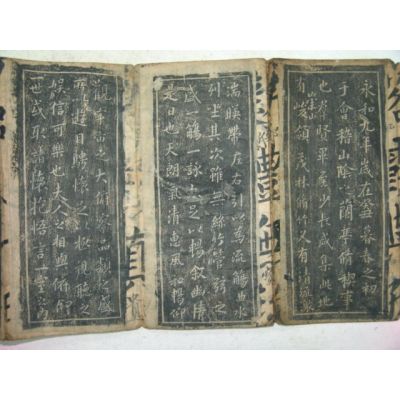 永和九年歲在癸丑暮春之初
于會稽山陰之蘭亭脩稧事
也群賢畢至少長咸集此地
有崇山峻領茂林脩竹又有清流激
湍暎帶左右引以為流觴曲水
列坐其次雖無絲竹管絃之
盛一觴一詠亦足以暢敘幽情
是日也天朗氣清惠風和暢仰
觀宇宙之大俯察品類之盛
所以遊目騁懷足以極視聽之
娛信可樂也夫人之相與俯仰
一世或取諸懷抱悟言一室之內